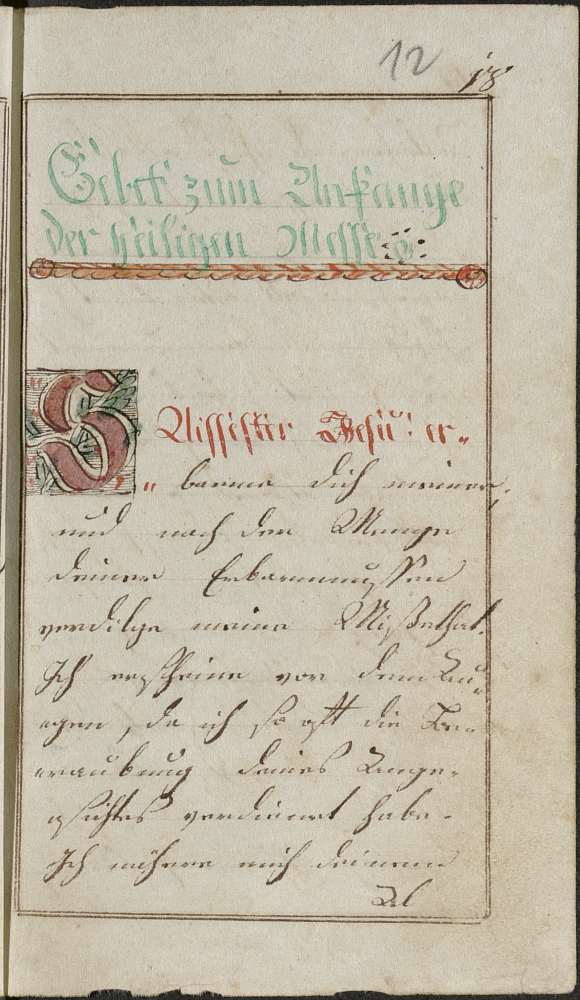 12
18
Gebet zum Anfange
der heiligen Messe
Süssester Jesu! er-
barme dich meiner,
und nach der Menge
deiner Erbarmnussen
verdilge meine Missethat.
Ich erscheine vor dem Au-
agen, da ich so oft die Be-
eraubung deines Ange-
gsichtes verdienet habe.
Ich nähere mich deinem
Al